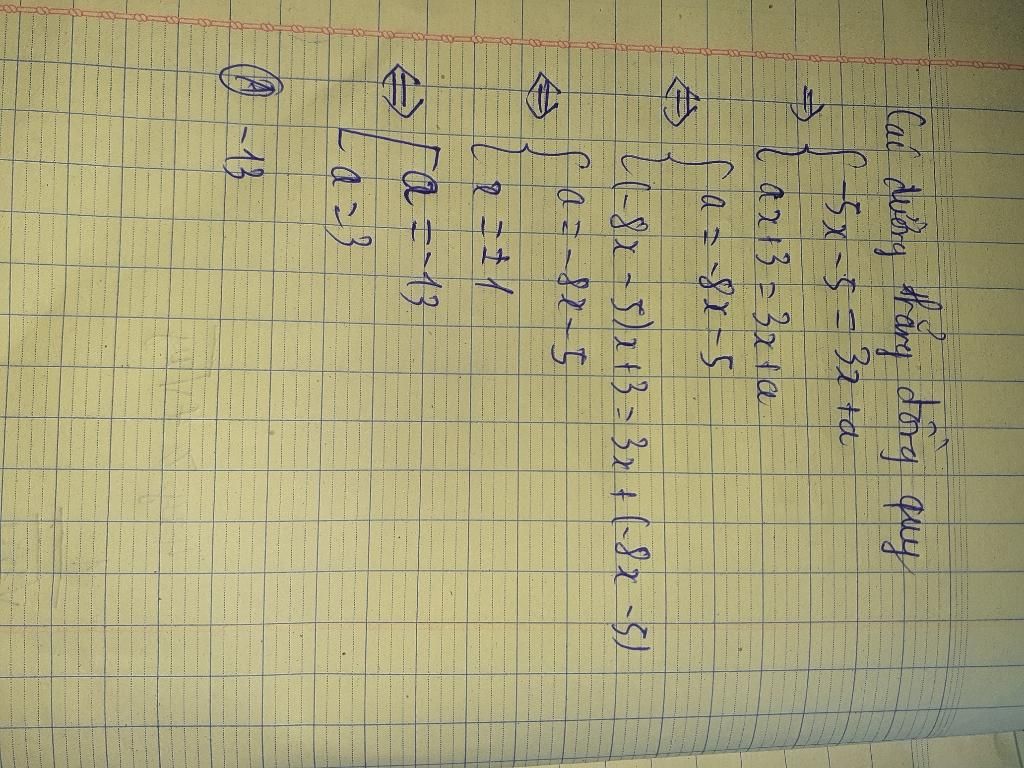 Các đường thẳng đồng quy
⇒ { -5x - 5 = 3x + a
ax + 3 = 3x + a
⇔ { a = -8x - 5
(-8x - 5)x + 3 = 3x + (-8x - 5)
⇔ { a = -8x - 5
x = ±1
⇔ [ a = -13
a = 3
Ⓐ -13